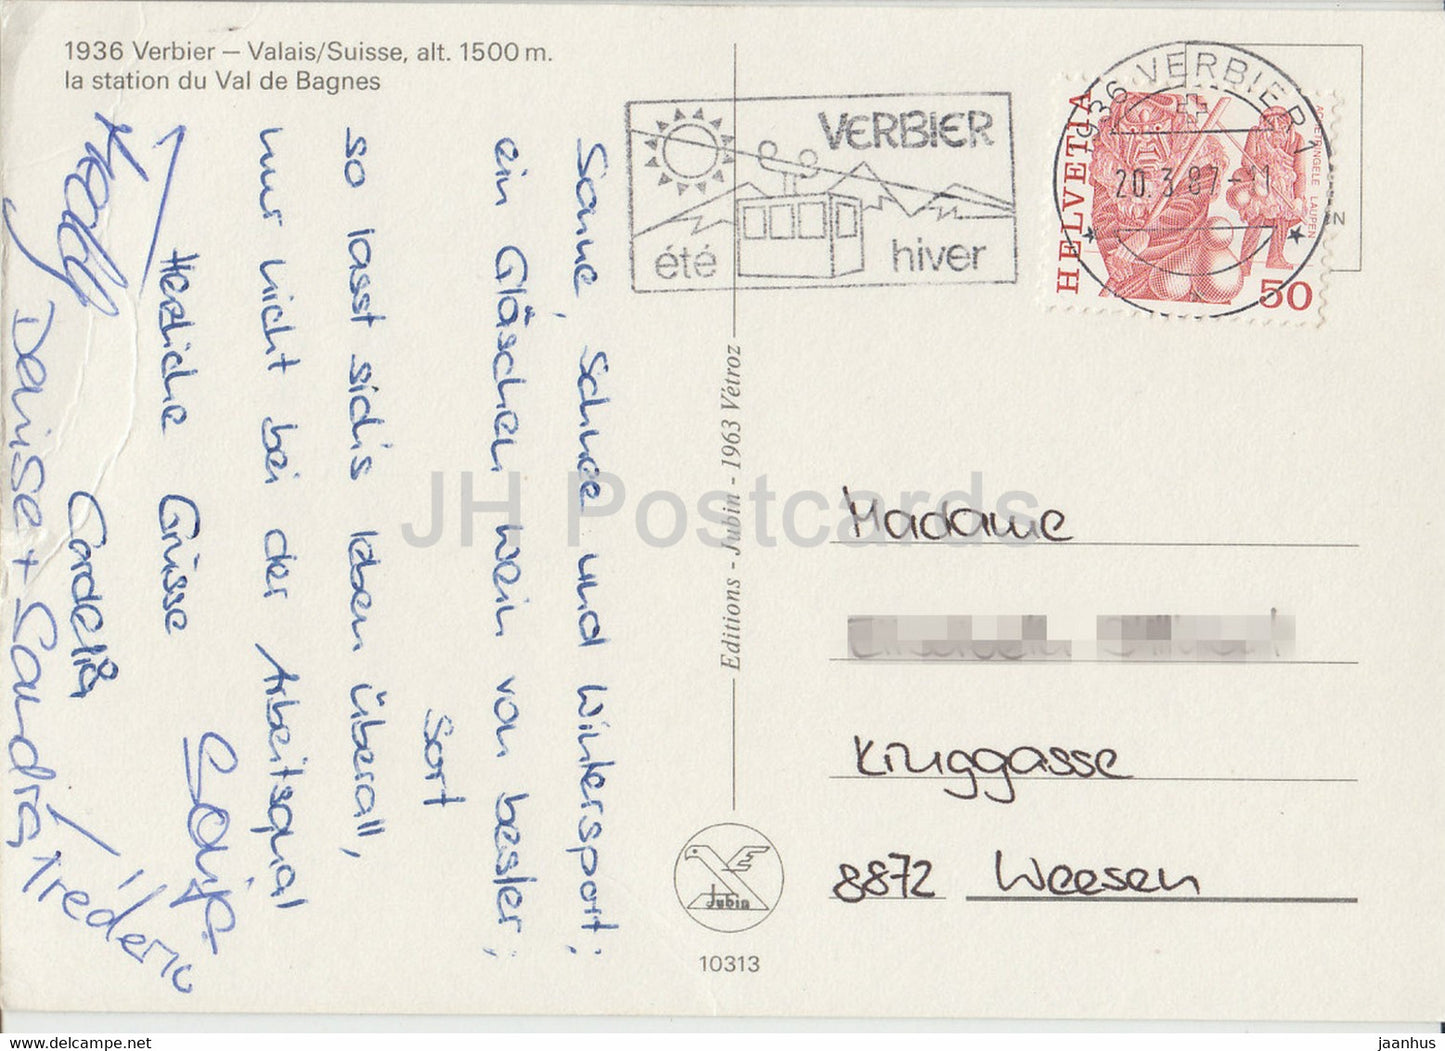 1936 Verbier – Valais/Suisse, alt. 1500 m.
la station du Val de Bagnes
Sonne, Schnee und Wintersport;
ein Gläschen Wein von bester;
Sort
so lasst sich's leben überall,
nur nicht bei der Arbeitsqual
Herzliche Grüsse
Cordelia
Denise + Sandra, Fréderic
VERBIER
été
hiver
1936 VERBIER 1
20.3.87-11
HELVETIA
ACHETRINGELE LAUPEN
50
Editions - Jubin - 1963 Vétroz
Jubin
10313
Madame
Kruggasse
8872 Weesen
JH Postcards
www.jhpostcards.com
jaanhus